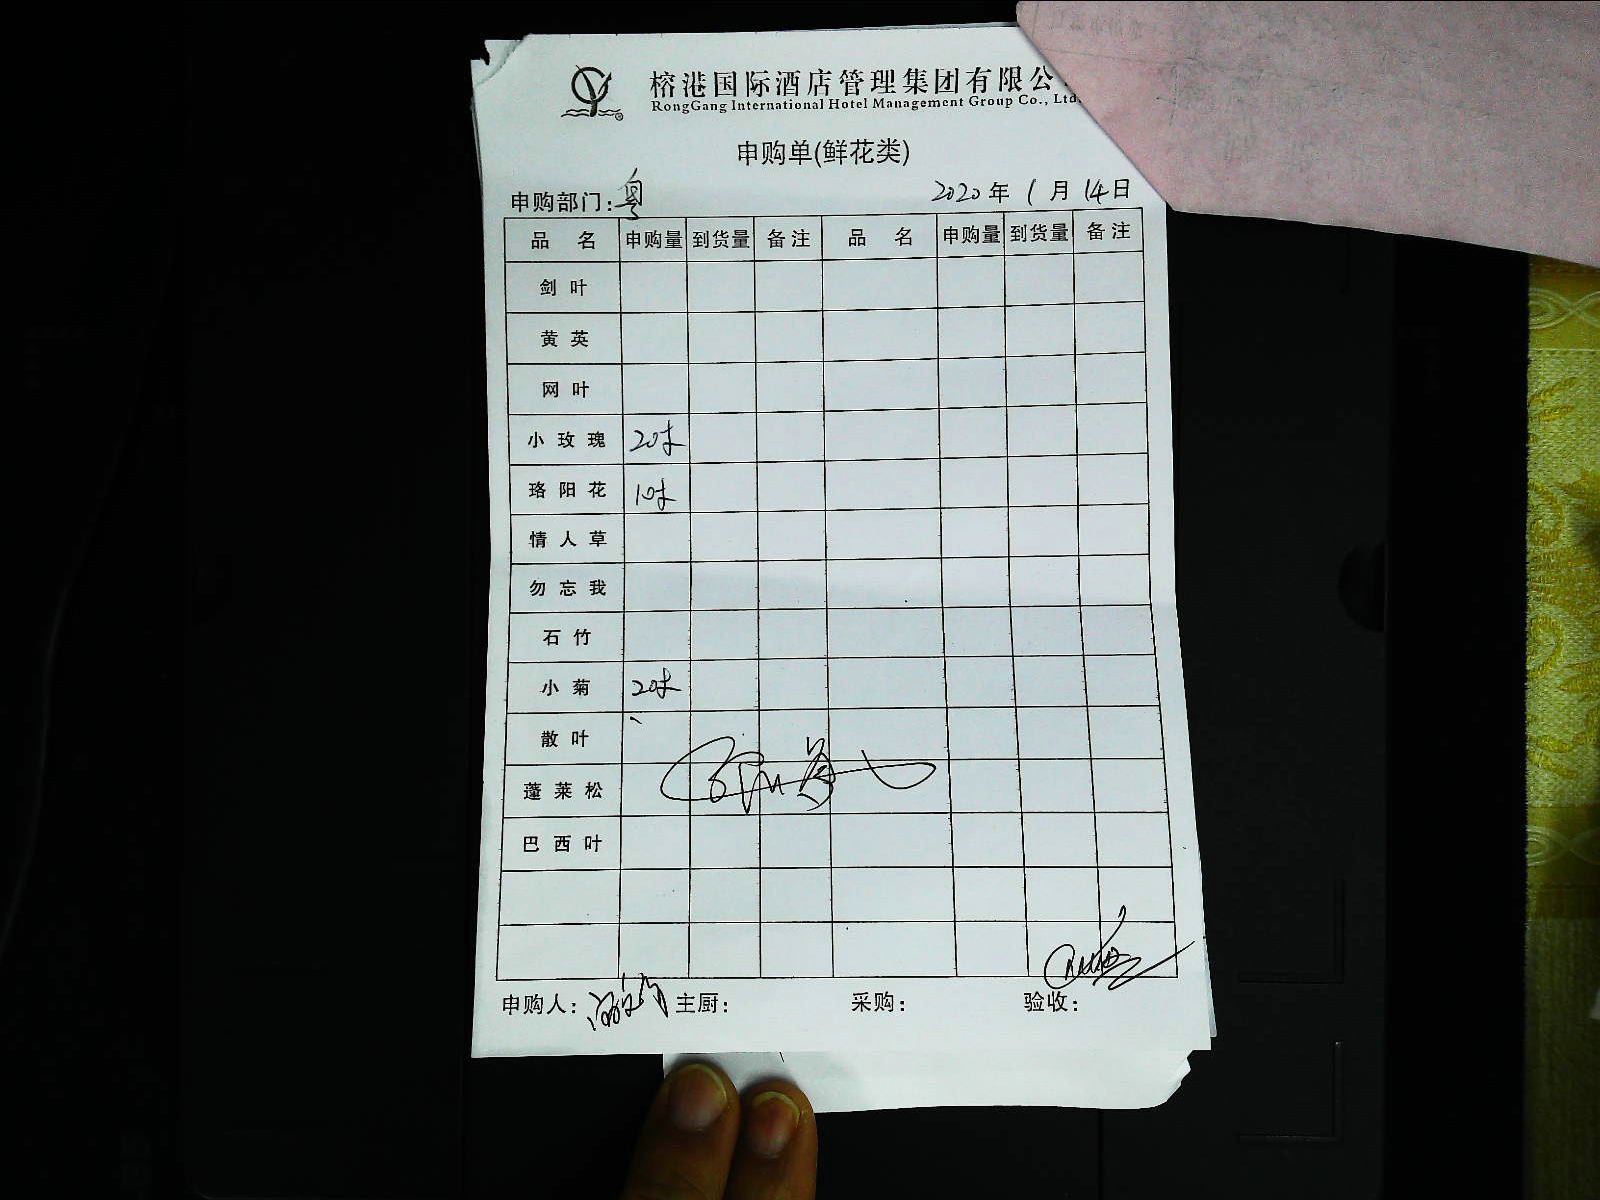 榕港国际酒店管理集团有限公
RongGang International Hotel Management Group Co., Ltd.
申购单(鲜花类)
申购部门：粤 2020年1月14日
品名 申购量 到货量 备注 品名 申购量 到货量 备注
剑叶
黄英
网叶
小玫瑰 20支
珞阳花 10支
情人草
勿忘我
石竹
小菊 20支
散叶
蓬莱松
巴西叶
申购人： 主厨： 采购： 验收：